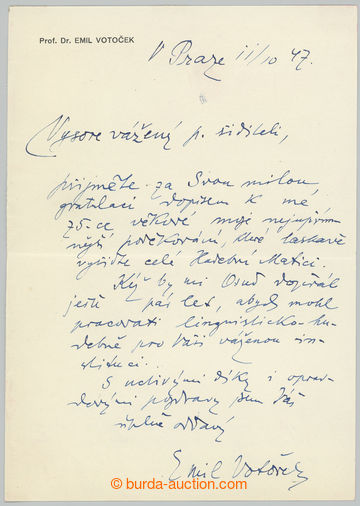 Prof. Dr. EMIL VOTOČEK
V Praze 11/10 47.
Vysoce vážený p. řiditeli,
přijměte za Svou milou
gratulaci dopisem k mé
75-ce věkové moje nejupřím-
nější poděkování, které laskavě
vyřiďte celé Hudební Matici.
Kéž by mi Osud dopřál
ještě pás let, abych mohl
pracovati linguisticko-hu-
debně pro Vaši váženou in-
stituci..
S uctivými díky i oprav-
dovými pozdravy jsem Váš
úplně oddaný
Emil Votoček
burda-auction.com